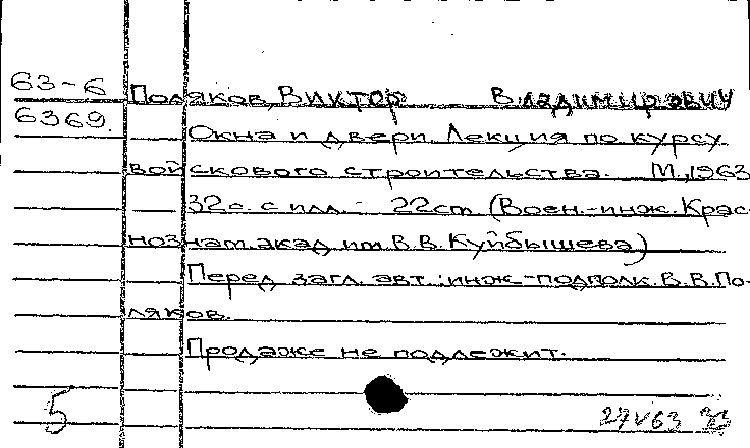 63-6 Поляков, Виктор Владимирович
6369. Окна и двери. Лекция по курсу
войскового строительства. М., 1963
32с. с илл. - 22см (Воен.-инж. Крас-
нознам. акад. им. В.В. Куйбышева)
Перед загл. авт.: инж.-подполк. В.В. По-
ляков.
Продаже не подлежит.
5 27 V 63